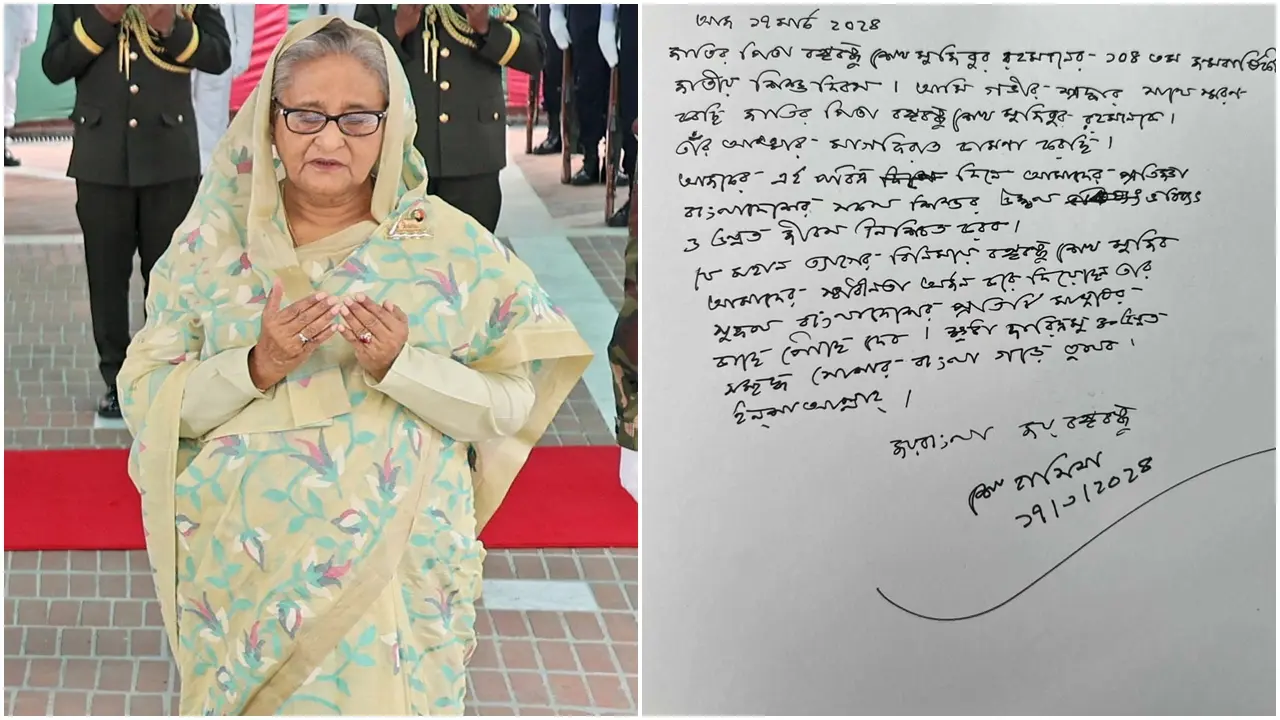 আজ ১৭ মার্চ ২০২৪
জাতির পিতা বঙ্গবন্ধু শেখ মুজিবুর রহমানের ১০৪ তম জন্মবার্ষিকী
জাতীয় শিশু দিবস। আমি গভীর শ্রদ্ধার সাথে স্মরণ
করছি জাতির পিতা বঙ্গবন্ধু শেখ মুজিবুর রহমানকে।
তাঁর আত্মার মাগফিরাত কামনা করছি।
আজকের এই পবিত্র দিনে আমাদের প্রতিজ্ঞা
বাংলাদেশের সকল শিশুর উজ্জ্বল ভবিষ্যৎ
ও উন্নত জীবন নিশ্চিত করব।
যে মহান ত্যাগের বিনিময়ে বঙ্গবন্ধু শেখ মুজিব
আমাদের স্বাধীনতা অর্জন করে দিয়েছেন তার
সুফল বাংলাদেশের প্রতিটি মানুষের
কাছে পৌঁছে দেব। ক্ষুধা দারিদ্র্য মুক্ত উন্নত
সমৃদ্ধ সোনার বাংলা গড়ে তুলব।
ইনশাআল্লাহ্।
জয়বাংলা জয় বঙ্গবন্ধু
শেখ হাসিনা
১৭/৩/২০২৪